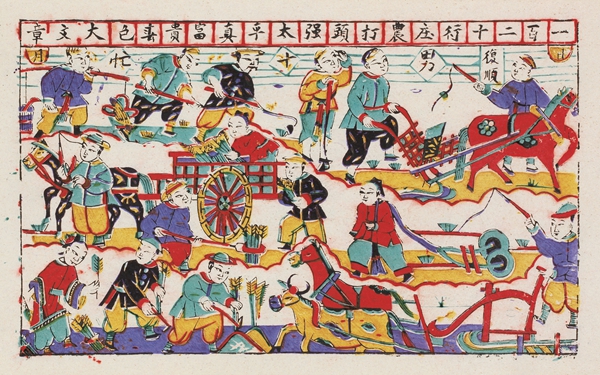 一百二十行庄農打頭强太平真富貴春色大文章
正
復順
男十忙
月